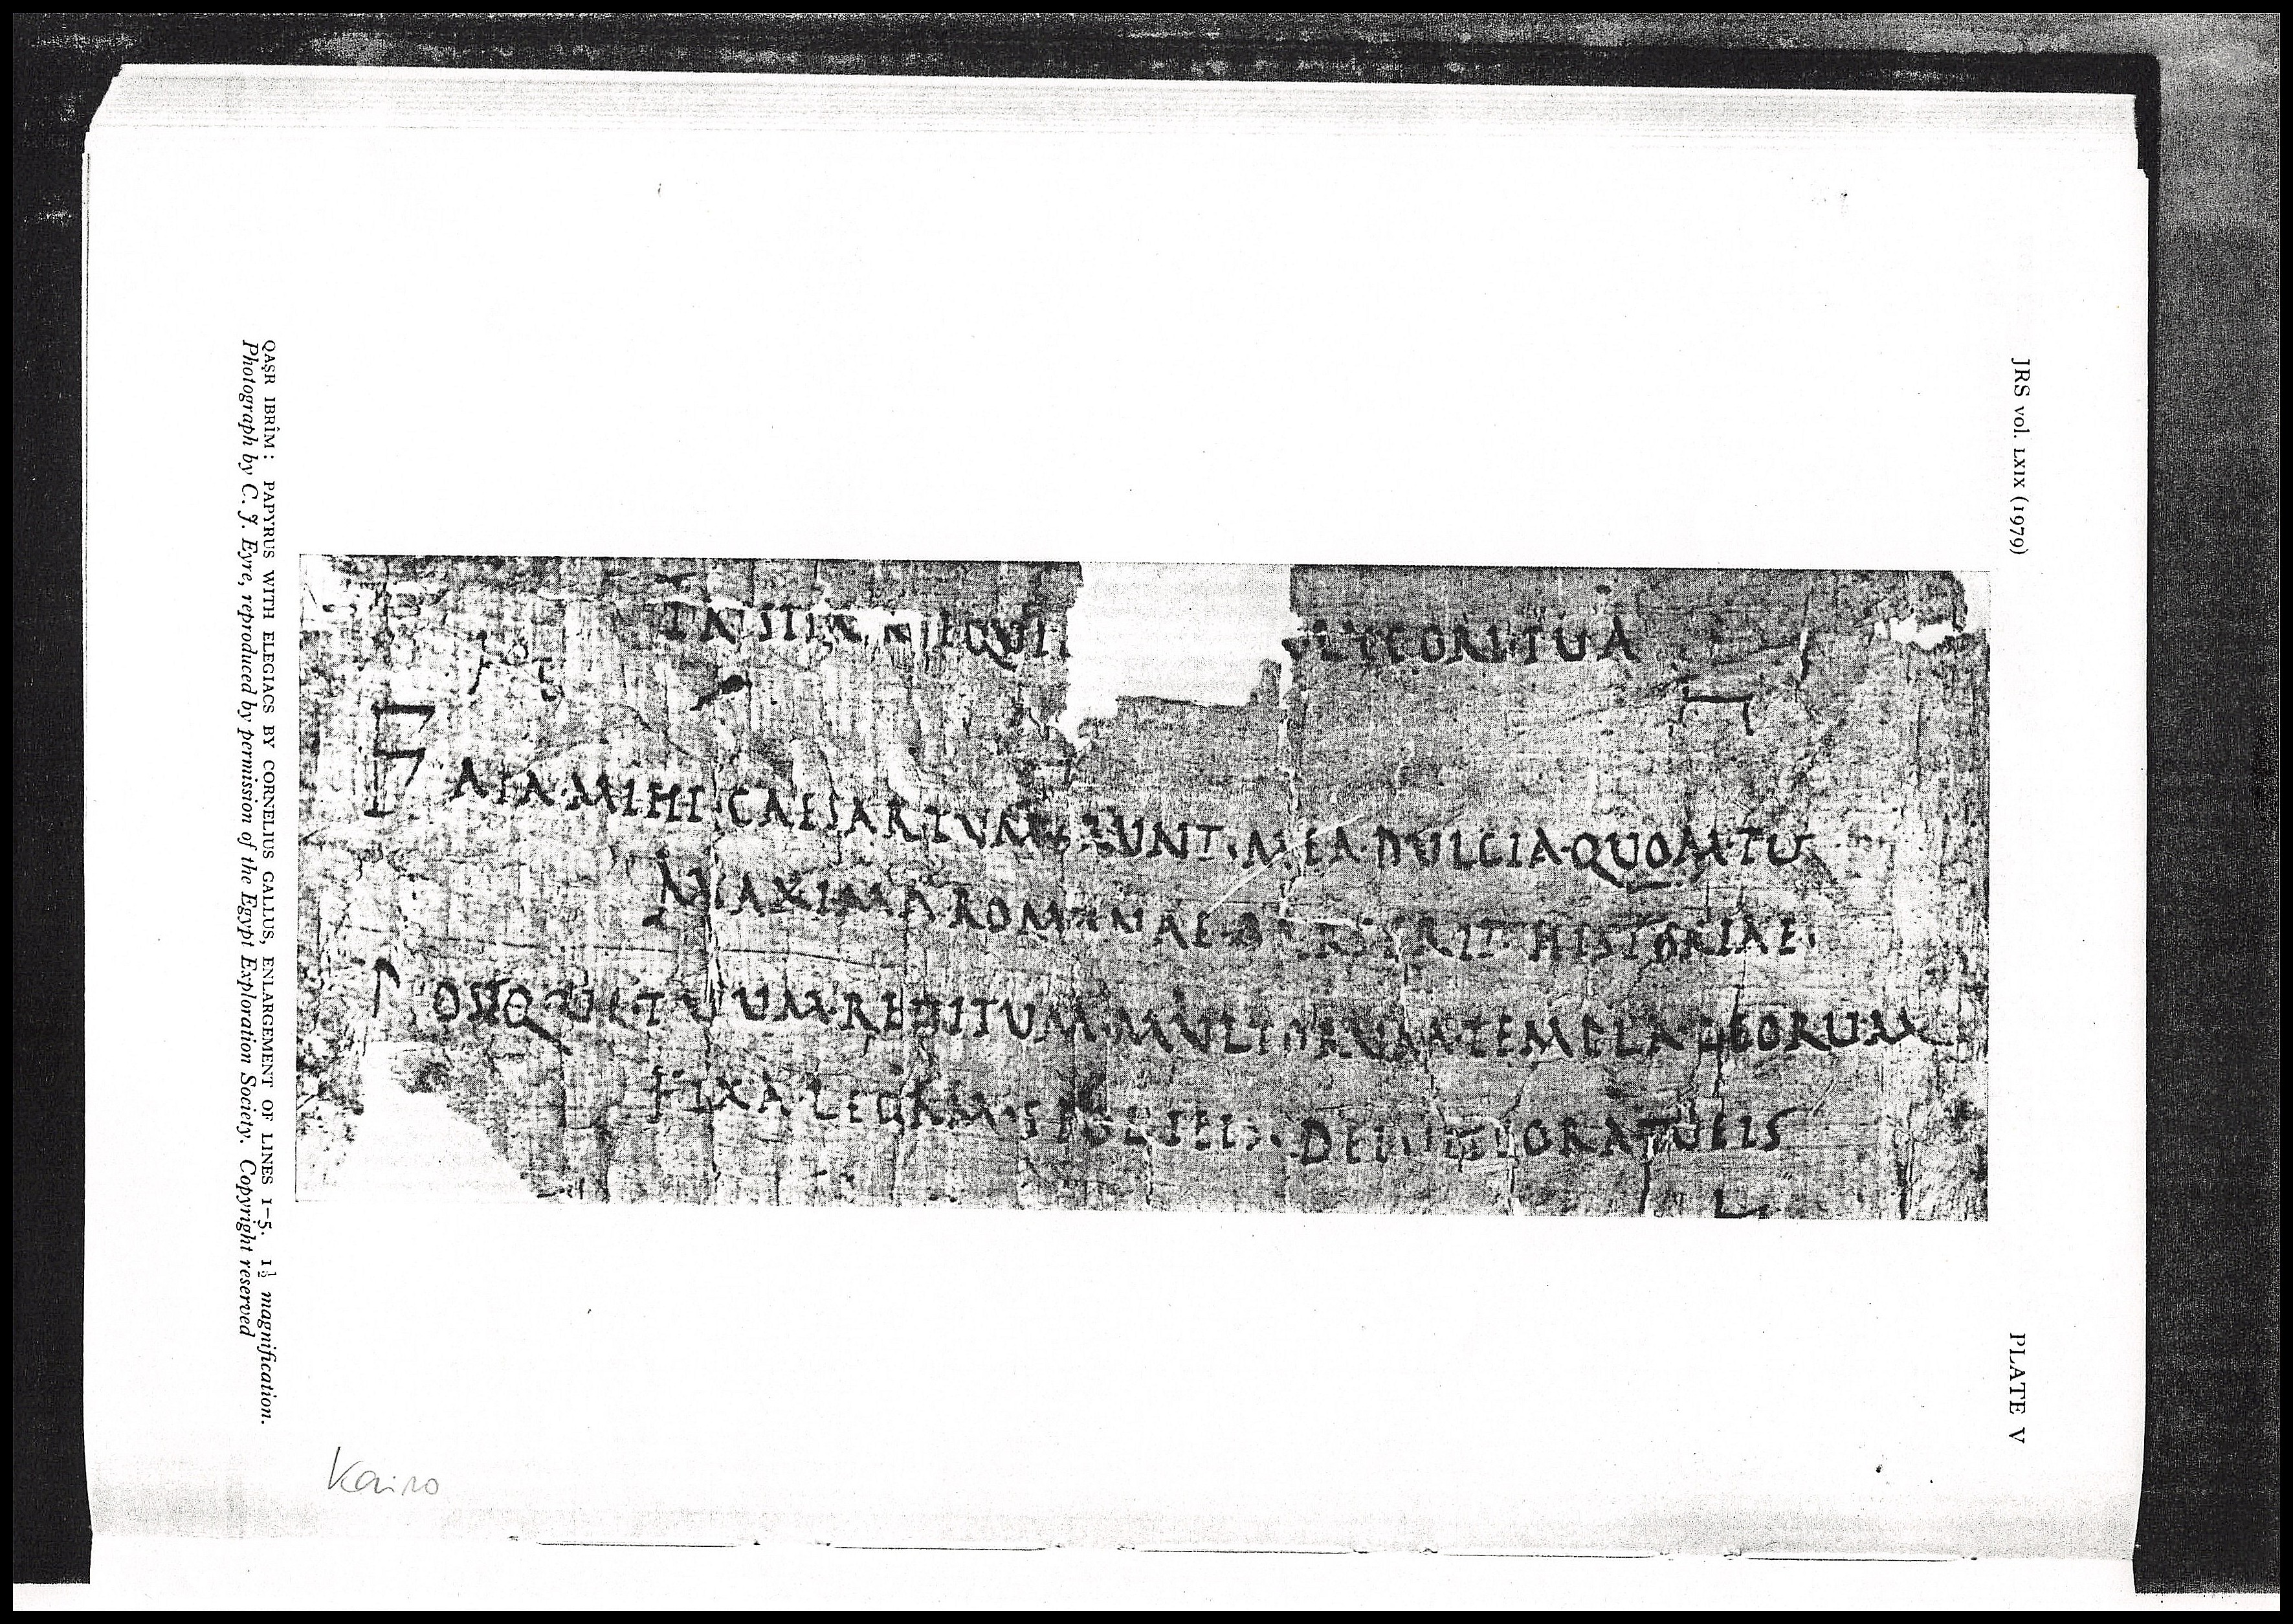 JRS vol. LXIX (1979)
PLATE V
TRISTIA NEQUIT A LYCORI TUA
FATA MIHI CAESAR TUM ERUNT MEA DULCIA QUOM TU
MAXIMA ROMANAE PARS ERIT HISTORIAE
POSTQUE TUUM REDITUM MULTORUM TEMPLA DEORUM
FIXA LEGAM SPOLIEIS DEIVITIORA TUEIS
QAṢR IBRÎM: PAPYRUS WITH ELEGIACS BY CORNELIUS GALLUS, ENLARGEMENT OF LINES 1–5. 1⅓ magnification.
Photograph by C. J. Eyre, reproduced by permission of the Egypt Exploration Society. Copyright reserved
Kairo